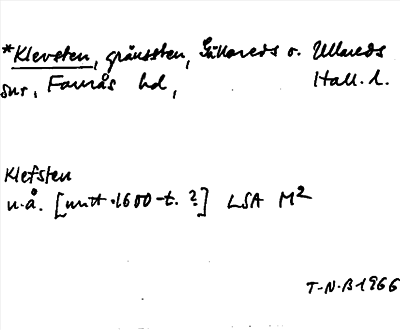 *Klevsten, gränssten, Gällareds o. Ullareds
snr, Faurås hd, Hall. l.
Klefsten
u.å. [mitt. 1600-t. ?] LSA M2
T-N-B 1966